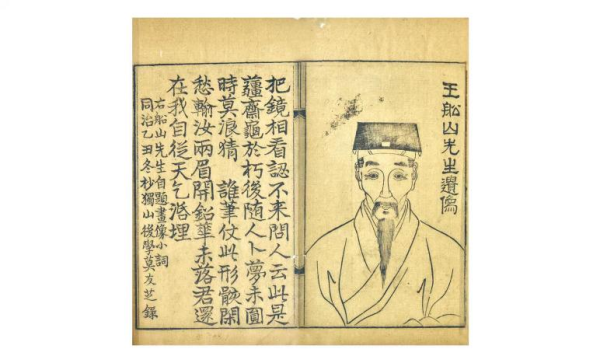 王船山先生遺像
把鏡相看認不来問人云此是
薑齋龜於朽後随人卜夢未圓
時莫浪猜 誰筆仗此形骸閒
愁輸汝兩眉開鉛華未落君還
在我自從天乞活埋
右船山先生自題畫像小詞
同治乙丑冬杪獨山後學莫友芝錄